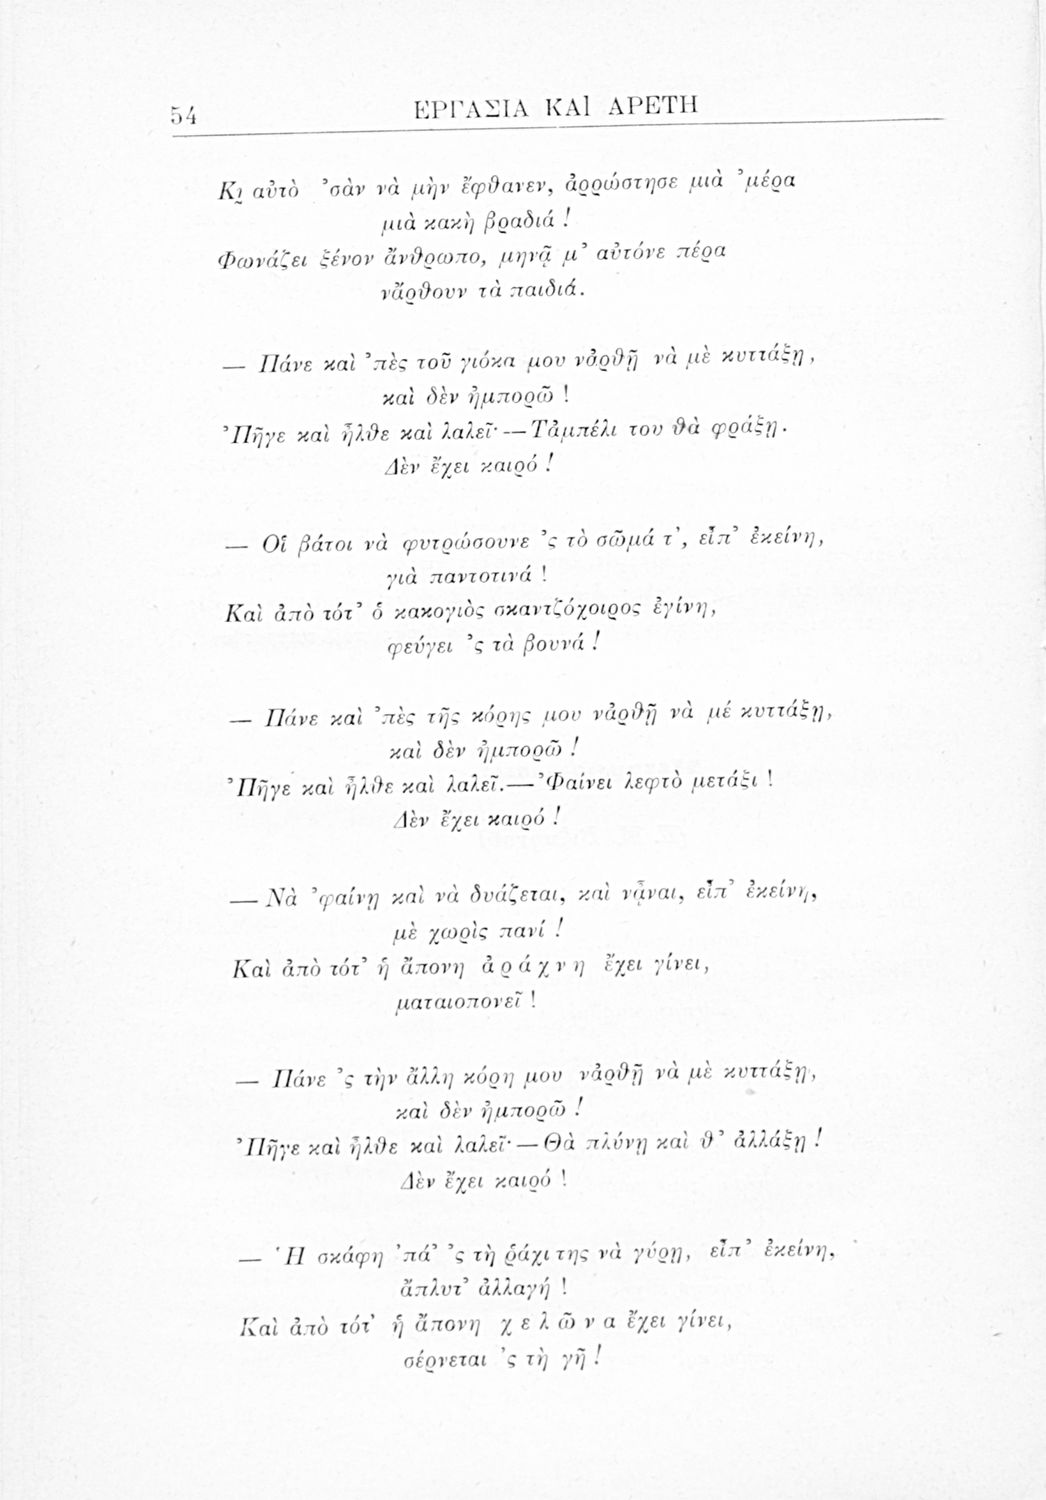 54 ΕΡΓΑΣΙΑ ΚΑΙ ΑΡΕΤΗ
Κι̯ αὐτὸ ᾿σὰν νὰ μὴν ἔφθανεν, ἀρρώστησε μιὰ ᾿μέρα
μιὰ κακὴ βραδιά !
Φωνάζει ξένον ἄνθρωπο, μηνᾷ μ᾿ αὐτόνε πέρα
νἄρθουν τὰ παιδιά.
— Πάνε καὶ ᾿πὲς τοῦ γιόκα μου νἀρθῇ νὰ μὲ κυττάξῃ,
καὶ δὲν ἠμπορῶ !
᾿Πῆγε καὶ ἦλθε καὶ λαλεῖ· — Τἀμπέλι του θὰ φράξῃ.
Δὲν ἔχει καιρό !
— Οἱ βάτοι νὰ φυτρώσουνε ᾿ς τὸ σῶμά τ᾿, εἶπ᾿ ἐκείνη,
γιὰ παντοτινά !
Καὶ ἀπὸ τότ᾿ ὁ κακογιὸς σκαντζόχοιρος ἐγίνη,
φεύγει ᾿ς τὰ βουνά !
— Πάνε καὶ ᾿πὲς τῆς κόρης μου νἀρθῇ νὰ μέ κυττάξῃ,
καὶ δὲν ἠμπορῶ !
᾿Πῆγε καὶ ἦλθε καὶ λαλεῖ.— ᾿Φαίνει λεφτὸ μετάξι !
Δὲν ἔχει καιρό !
— Νὰ ᾿φαίνῃ καὶ νὰ δυάζεται, καὶ νἆναι, εἶπ᾿ ἐκείνη,
μὲ χωρὶς πανί !
Καὶ ἀπὸ τότ᾿ ἡ ἄπονη ἀ ρ ά χ ν η ἔχει γίνει,
ματαιοπονεῖ !
— Πάνε ᾿ς τὴν ἄλλη κόρη μου νἀρθῇ νὰ μὲ κυττάξῃ,
καὶ δὲν ἠμπορῶ !
᾿Πῆγε καὶ ἦλθε καὶ λαλεῖ· — Θὰ πλύνῃ καὶ θ᾿ ἀλλάξῃ !
Δὲν ἔχει καιρό !
— Ἡ σκάφη ᾿πά᾿ ᾿ς τὴ ῥάχι της νὰ γύρῃ, εἶπ᾿ ἐκείνη,
ἄπλυτ᾿ ἀλλαγή !
Καὶ ἀπὸ τότ᾿ ἡ ἄπονη χ ε λ ῶ ν α ἔχει γίνει,
σέρνεται ᾿ς τὴ γῆ !